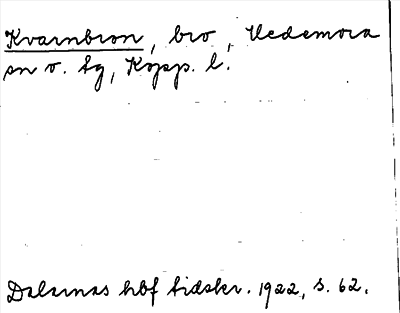 Kvarnbron, bro, Hedemora
sn o. tg, Kopp. l.
Dalarnas hbf tidskr. 1922, s. 62.